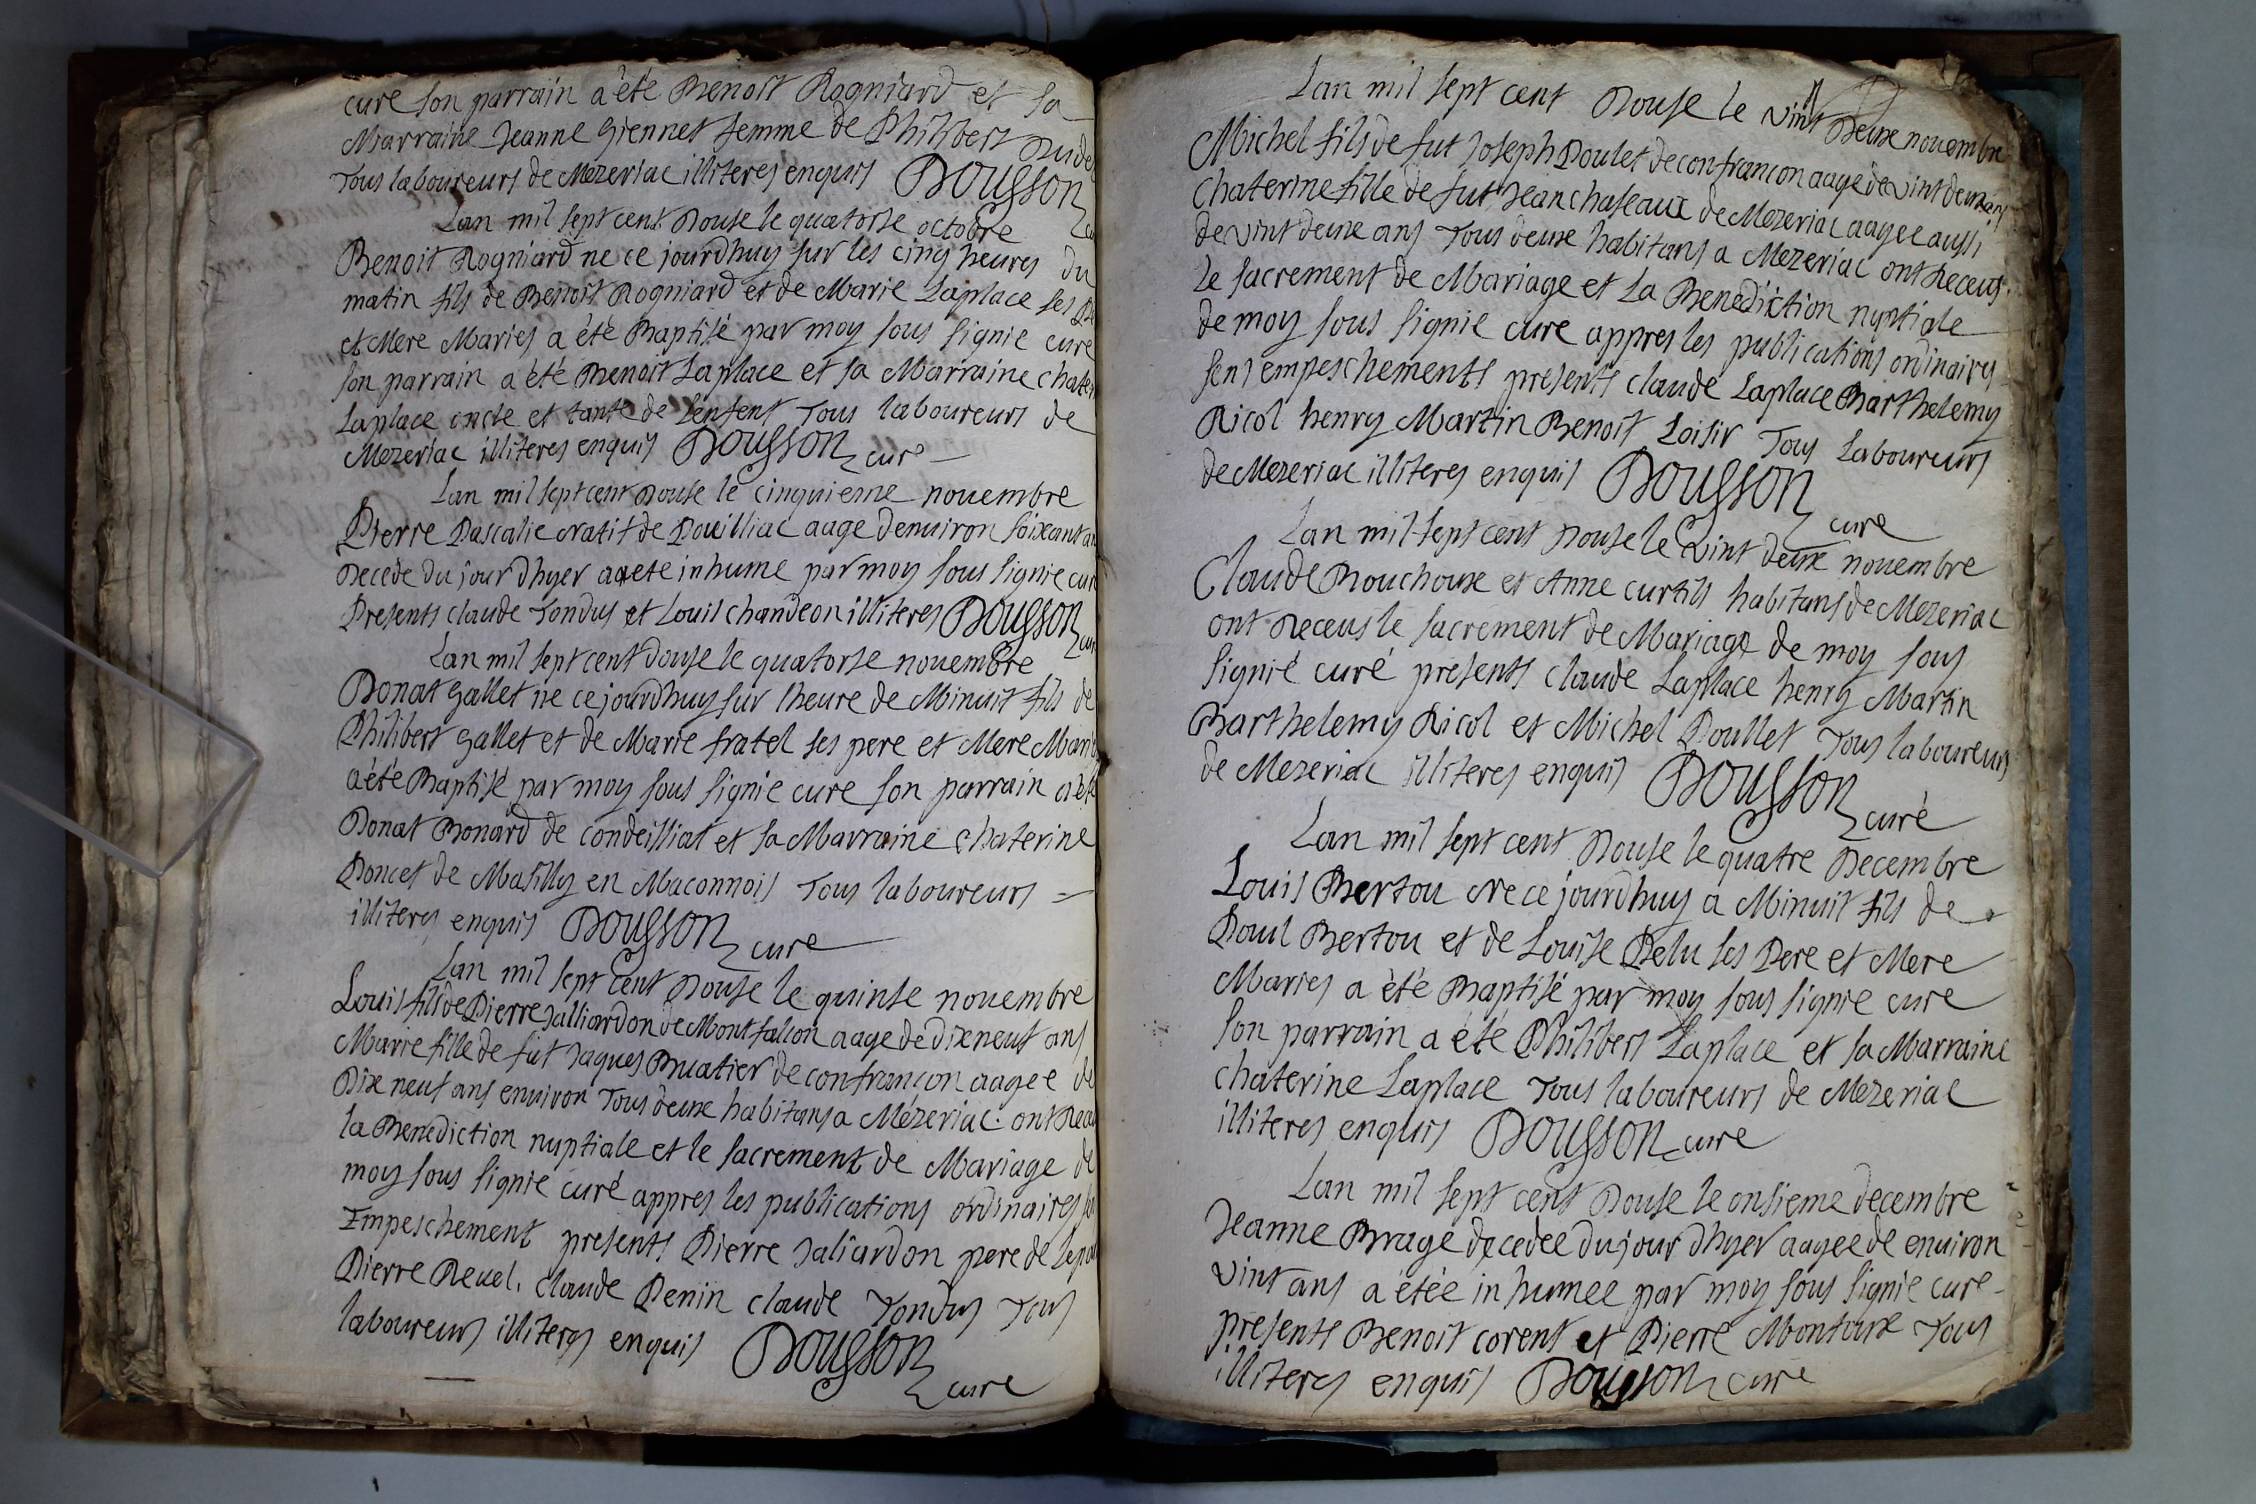 cure son parrain a été Benoit Rogniard et sa
Marraine Jeanne Giennet femme de Philibert
Tous laboureurs de Mezeriac illiteres enquis Bousson
Lan mil sept cent Douse le quatorse octobre
Benoit Rogniard ne ce jourdhuy sur les cinq heures du
matin fils de Benoit Rogniard et de Marie Laplace ses
et Mere Maries a été Baptisé par moy sous signie cure
son parrain a été Benoit Laplace et sa Marraine chater
Laplace oncle et tante de lenfent Tous laboureurs de
Mezeriac illiteres enquis Bousson cure
Lan mil sept cent Douse le cinquieme nouembre
Pierre Pascalie natif de Pouilliac aage denuiron soixant an
Decede du jour dhyer a ete inhume par moy sous signie cure
Presents claude Tondus et Louis chandeon illiteres Bousson cure
Lan mil sept cent douse le quatorse nouembre
Donat Gallet ne ce jourdhuy sur lheure de Minuit fils de
Philibert Gallet et de Marie fratel ses pere et Mere Maries
a été Baptisé par moy sous signie cure son parrain a été
Donat Bonard de condeissiat et sa Marraine chaterine
Poncet de Masilly en Maconnois Tous laboureurs
illiteres enquis Bousson cure
Lan mil sept cent Douse le quinse nouembre
Louis fils de Pierre Jalliardon de Montfalcon aage de dixneuf ans
Marie fille de fut Jaques Buatier de confrancon aagee de
Dix neuf ans enuiron Tous deux habitans a Mézeriac ont Receu
la Benediction nuptiale et le sacrement de Mariage de
moy sous signie curé appres les publications ordinaires
Empeschement presents Pierre Jaliardon pere de lepou
Pierre Reuel, claude Penin claude Tondus Tous
laboureurs illiteres enquis Bousson
cure
Lan mil sept cent Douse le vint Deux nouembre
Michel fils de fut Joseph Poulet de confrancon aage de vint deux ans
Chaterine fille de fut Jean chaseaux de Mezeriac aagee aussi
de vint deux ans Tous deux habitans a Mezeriac ont Receus
le sacrement de Mariage et la Benediction nyptiale
de moy sous signie cure appres les publications ordinaires
sens empeschements presents claude Laplace Barthelemy
Ricol henry Martin Benoit Loisir Tous Laboureurs
de Mezeriac illiteres enquis Bousson
cure
Lan mil sept cent Douse le vint deux nouembre
Claude Bouchoux et Anne curtils habitans de Mezeriac
ont Receus le sacrement de Mariage de moy sous
signié curé presents claude Laplace henry Martin
Barthelemy Ricol et Michel Poullet Tous laboureurs
de Mezeriac illiteres enquis Bousson
curé
Lan mil sept cent Douse le quatre Decembre
Louis Bertou Ne ce jourdhuy a Minuit fils de
Poul Bertou et de Louise Pelu ses Pere et Mere
Maries a été Baptisé par moy sous signie cure
son parrain a été Philibert Laplace et sa Marraine
chaterine Laplace Tous laboureurs de Mezeriac
illiteres enquis Bousson cure
Lan mil sept cent Douse le onsieme decembre
Jeanne Brage decedée du jour dhyer aagee de enuiron
vint ans a étée inhumee par moy sous signie cure
presents Benoit corent et Pierre Montoux Tous
illiteres enquis Bousson cure